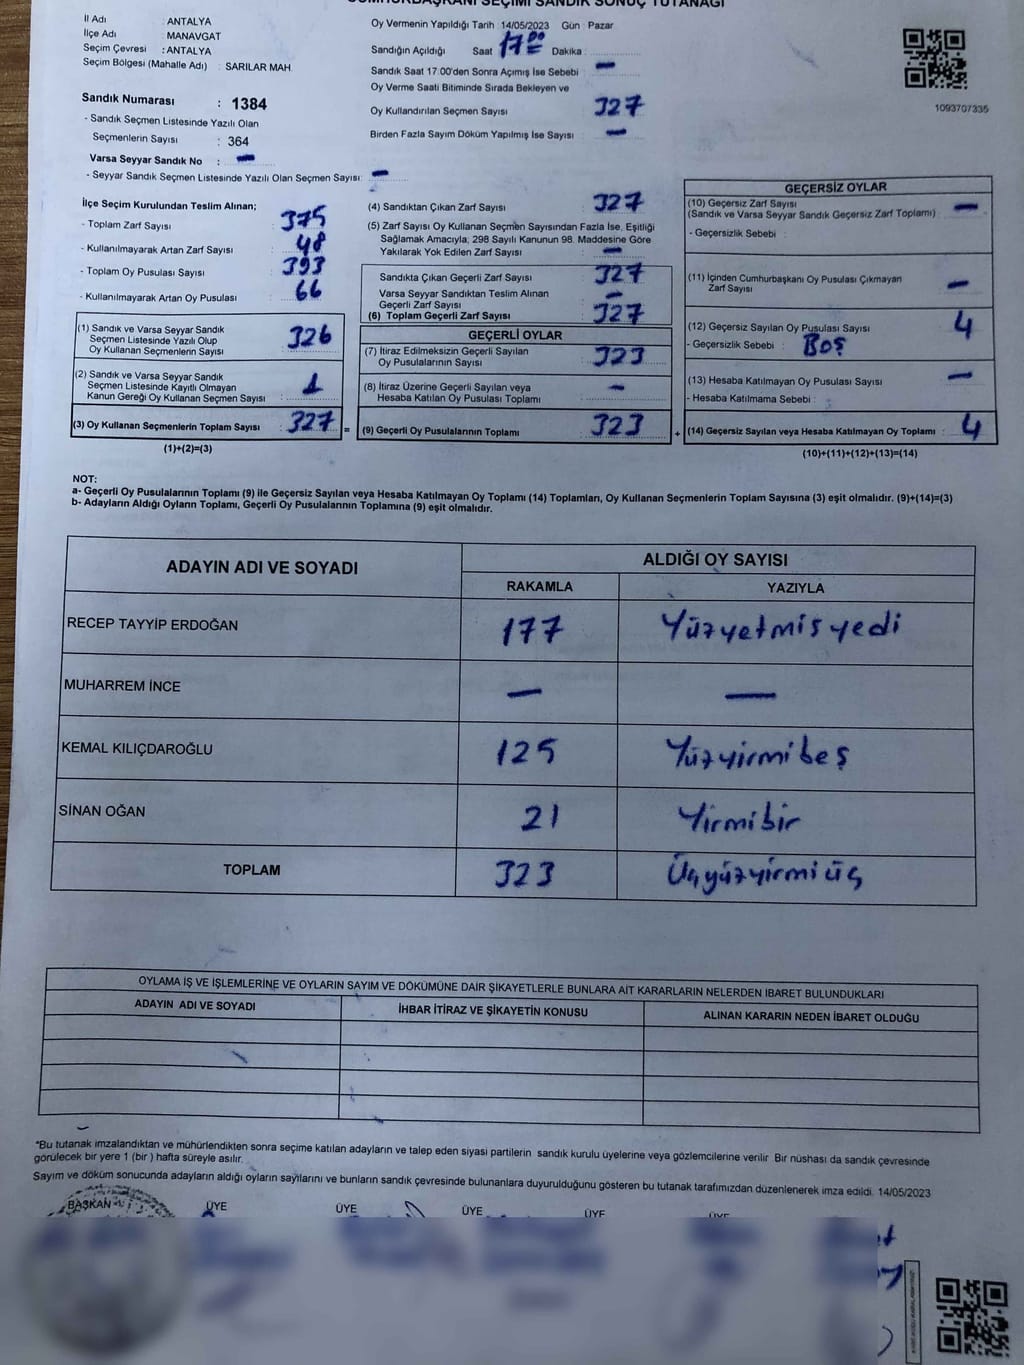 CUMHURBAŞKANI SEÇİMİ SANDIK SONUÇ TUTANAĞI
İl Adı : ANTALYA
İlçe Adı : MANAVGAT
Seçim Çevresi : ANTALYA
Seçim Bölgesi (Mahalle Adı) : SARILAR MAH.
Sandık Numarası : 1384
- Sandık Seçmen Listesinde Yazılı Olan
Seçmenlerin Sayısı : 364
Varsa Seyyar Sandık No : —
- Seyyar Sandık Seçmen Listesinde Yazılı Olan Seçmen Sayısı: —
Oy Vermenin Yapıldığı Tarih : 14/05/2023 Gün : Pazar
Sandığın Açıldığı Saat 17 00 Dakika :
Sandık Saat 17:00'den Sonra Açımış İse Sebebi —
Oy Verme Saati Bitiminde Sırada Bekleyen ve
Oy Kullandırılan Seçmen Sayısı 327
Birden Fazla Sayım Döküm Yapılmış İse Sayısı —
1093707335
İlçe Seçim Kurulundan Teslim Alınan;
- Toplam Zarf Sayısı : 375
- Kullanılmayarak Artan Zarf Sayısı : 48
- Toplam Oy Pusulası Sayısı : 393
- Kullanılmayarak Artan Oy Pusulası : 66
(1) Sandık ve Varsa Seyyar Sandık
Seçmen Listesinde Yazılı Olup
Oy Kullanan Seçmenlerin Sayısı : 326
(2) Sandık ve Varsa Seyyar Sandık
Seçmen Listesinde Kayıtlı Olmayan
Kanun Gereği Oy Kullanan Seçmen Sayısı : 1
(3) Oy Kullanan Seçmenlerin Toplam Sayısı : 327
(1)+(2)=(3)
(4) Sandıktan Çıkan Zarf Sayısı : 327
(5) Zarf Sayısı Oy Kullanan Seçmen Sayısından Fazla İse, Eşitliği
Sağlamak Amacıyla, 298 Sayılı Kanunun 98. Maddesine Göre
Yakılarak Yok Edilen Zarf Sayısı : —
Sandıkta Çıkan Geçerli Zarf Sayısı : 327
Varsa Seyyar Sandıktan Teslim Alınan
Geçerli Zarf Sayısı : —
(6) Toplam Geçerli Zarf Sayısı : 327
GEÇERLİ OYLAR
(7) İtiraz Edilmeksizin Geçerli Sayılan
Oy Pusulalarının Sayısı : 323
(8) İtiraz Üzerine Geçerli Sayılan veya
Hesaba Katılan Oy Pusulası Toplamı : —
= (9) Geçerli Oy Pusulalarının Toplamı : 323
GEÇERSİZ OYLAR
(10) Geçersiz Zarf Sayısı
(Sandık ve Varsa Seyyar Sandık Geçersiz Zarf Toplamı) : —
- Geçersizlik Sebebi :
(11) İçinden Cumhurbaşkanı Oy Pusulası Çıkmayan
Zarf Sayısı : —
(12) Geçersiz Sayılan Oy Pusulası Sayısı : 4
- Geçersizlik Sebebi : BOŞ
(13) Hesaba Katılmayan Oy Pusulası Sayısı : —
- Hesaba Katılmama Sebebi :
+ (14) Geçersiz Sayılan veya Hesaba Katılmayan Oy Toplamı : 4
(10)+(11)+(12)+(13)=(14)
NOT:
a- Geçerli Oy Pusulalarının Toplamı (9) ile Geçersiz Sayılan veya Hesaba Katılmayan Oy Toplamı (14) Toplamları, Oy Kullanan Seçmenlerin Toplam Sayısına (3) eşit olmalıdır. (9)+(14)=(3)
b- Adayların Aldığı Oyların Toplamı, Geçerli Oy Pusulalarının Toplamına (9) eşit olmalıdır.
ADAYIN ADI VE SOYADI ALDIĞI OY SAYISI
RAKAMLA YAZIYLA
RECEP TAYYİP ERDOĞAN 177 Yüzyetmişyedi
MUHARREM İNCE — —
KEMAL KILIÇDAROĞLU 125 Yüzyirmibeş
SİNAN OĞAN 21 Yirmibir
TOPLAM 323 Üçyüzyirmiüç
OYLAMA İŞ VE İŞLEMLERİNE VE OYLARIN SAYIM VE DÖKÜMÜNE DAİR ŞİKAYETLERLE BUNLARA AİT KARARLARIN NELERDEN İBARET BULUNDUKLARI
ADAYIN ADI VE SOYADI İHBAR İTİRAZ VE ŞİKAYETİN KONUSU ALINAN KARARIN NEDEN İBARET OLDUĞU
*Bu tutanak imzalandıktan ve mühürlendikten sonra seçime katılan adayların ve talep eden siyasi partilerin sandık kurulu üyelerine veya gözlemcilerine verilir Bir nüshası da sandık çevresinde
görülecek bir yere 1 (bir ) hafta süreyle asılır.
Sayım ve döküm sonucunda adayların aldığı oyların sayılarını ve bunların sandık çevresinde bulunanlara duyurulduğunu gösteren bu tutanak tarafımızdan düzenlenerek imza edildi. 14/05/2023
BAŞKAN ÜYE ÜYE ÜYE ÜYE ÜYE